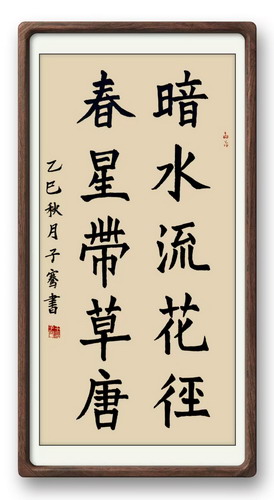 暗水流花径
春星帶草唐
乙巳秋月子騫書